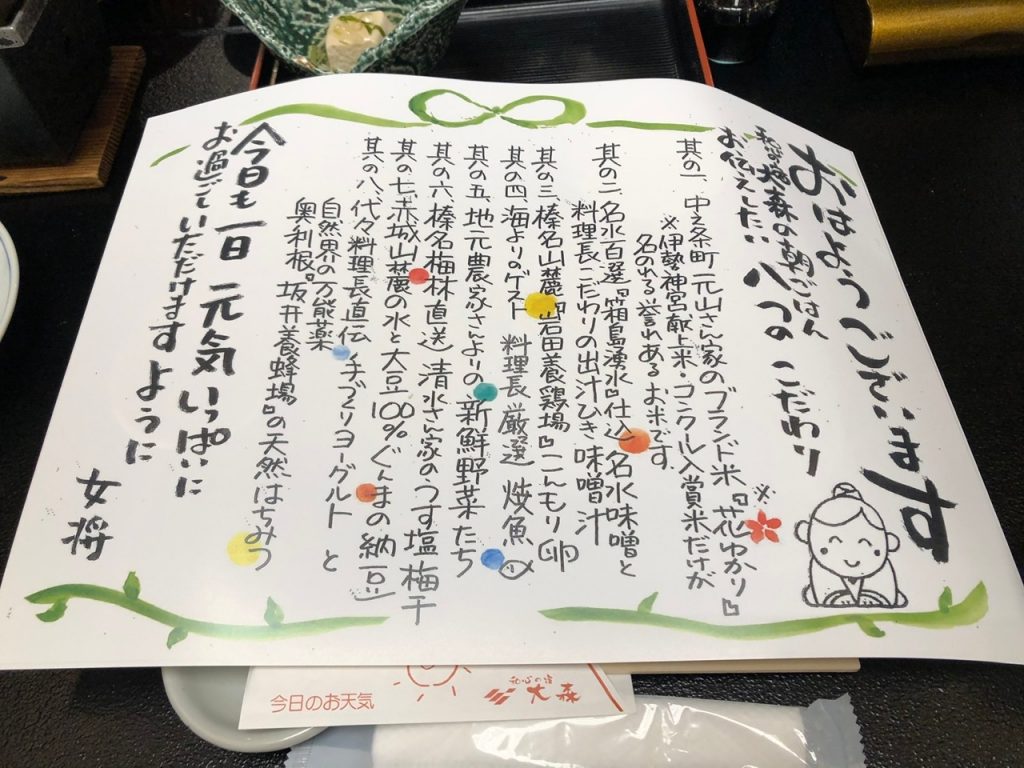 おはようございます
和心の宿大森の朝ごはん
お伝えしたい八つのこだわり
其の一、中之条町元山さん家のブランド米『花ゆかり』※
※伊勢神宮献上米・コンクル入賞米だけが
名のれる誉れあるお米です
其の二、名水百選『箱島湧水』仕込 名水味噌と
料理長こだわりの出汁ひき 味噌汁
其の三、榛名山麓『岩田養鶏場』こんもり卵
其の四、海よりのゲスト 料理長厳選 焼魚
其の五、地元農家さんよりの新鮮野菜たち
其の六、榛名梅林直送 清水さん家のうす塩梅干
其の七、赤城山麓の水と大豆100%ぐんまの納豆
其の八、代々料理長直伝 手づくりヨーグルト と
自然界の万能薬
奥利根『坂井養蜂場』の天然はちみつ
今日も一日 元気いっぱいに
お過ごしていただけますように
女将
今日のお天気
和心の宿
大森